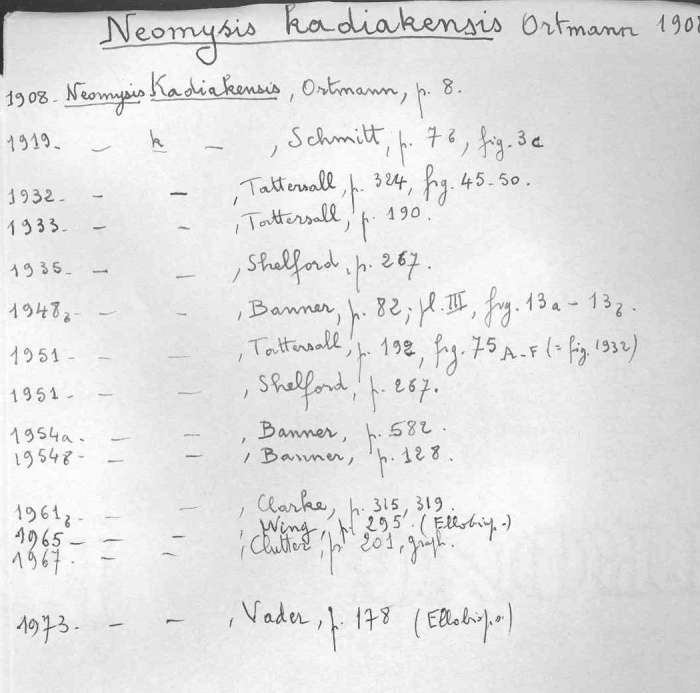 Neomysis kadiakensis Ortmann 1908
1908. Neomysis Kadiakensis, Ortmann, p. 8.
1919. — k — , Schmitt, p. 7 , fig. 3c
1932. — — , Tattersall, p. 324, fig. 45-50.
1933. — — , Tattersall, p. 190.
1935. — — , Shelford, p. 267.
1948b — — , Banner, p. 82; pl. III, fig. 13a - 13b.
1951 — — , Tattersall, p. 192, fig. 75 A-F (= fig. 1932)
1951 — — , Shelford, p. 267.
1954a. — — , Banner, p. 582.
1954b — — , Banner, p. 128.
1961b — — , Clarke, p. 315, 319.
1965 — — , Wing, p. 295 (Ellobiop.)
1967. — — , Clutter, p. 201, graph.
1973. — — , Vader, p. 178 (Ellobiop.)